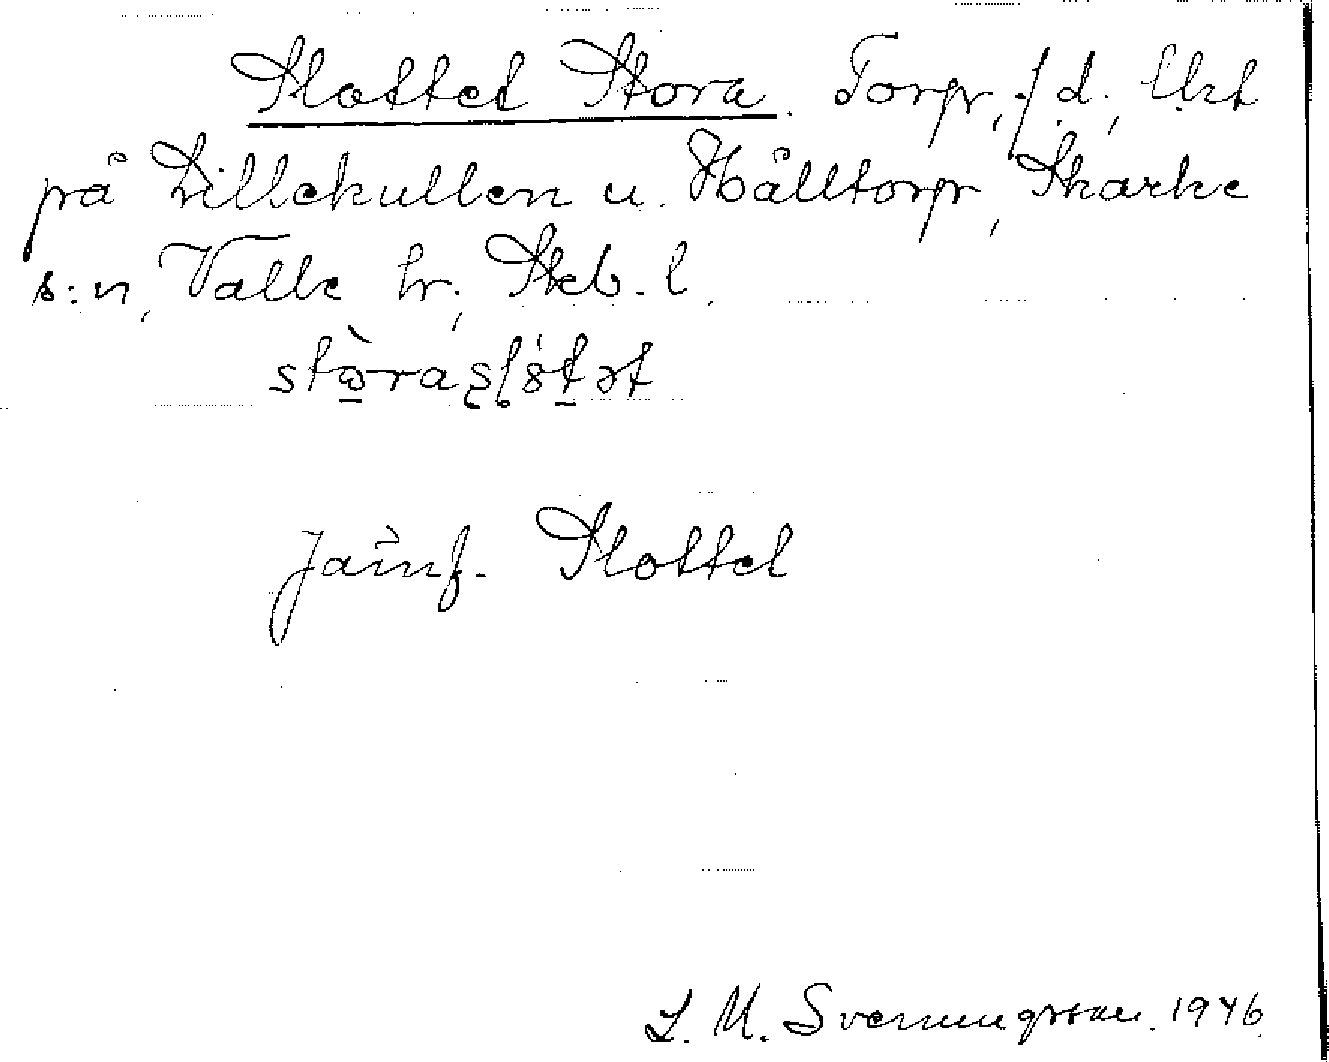 Slottet Stora. Torp, f.d., Utk
på Lillekullen u. Hålltorp, Skarke
s:n, Valle hr, Skb. l.
Jämf. Slottet
L. M. Svenungsson. 1946